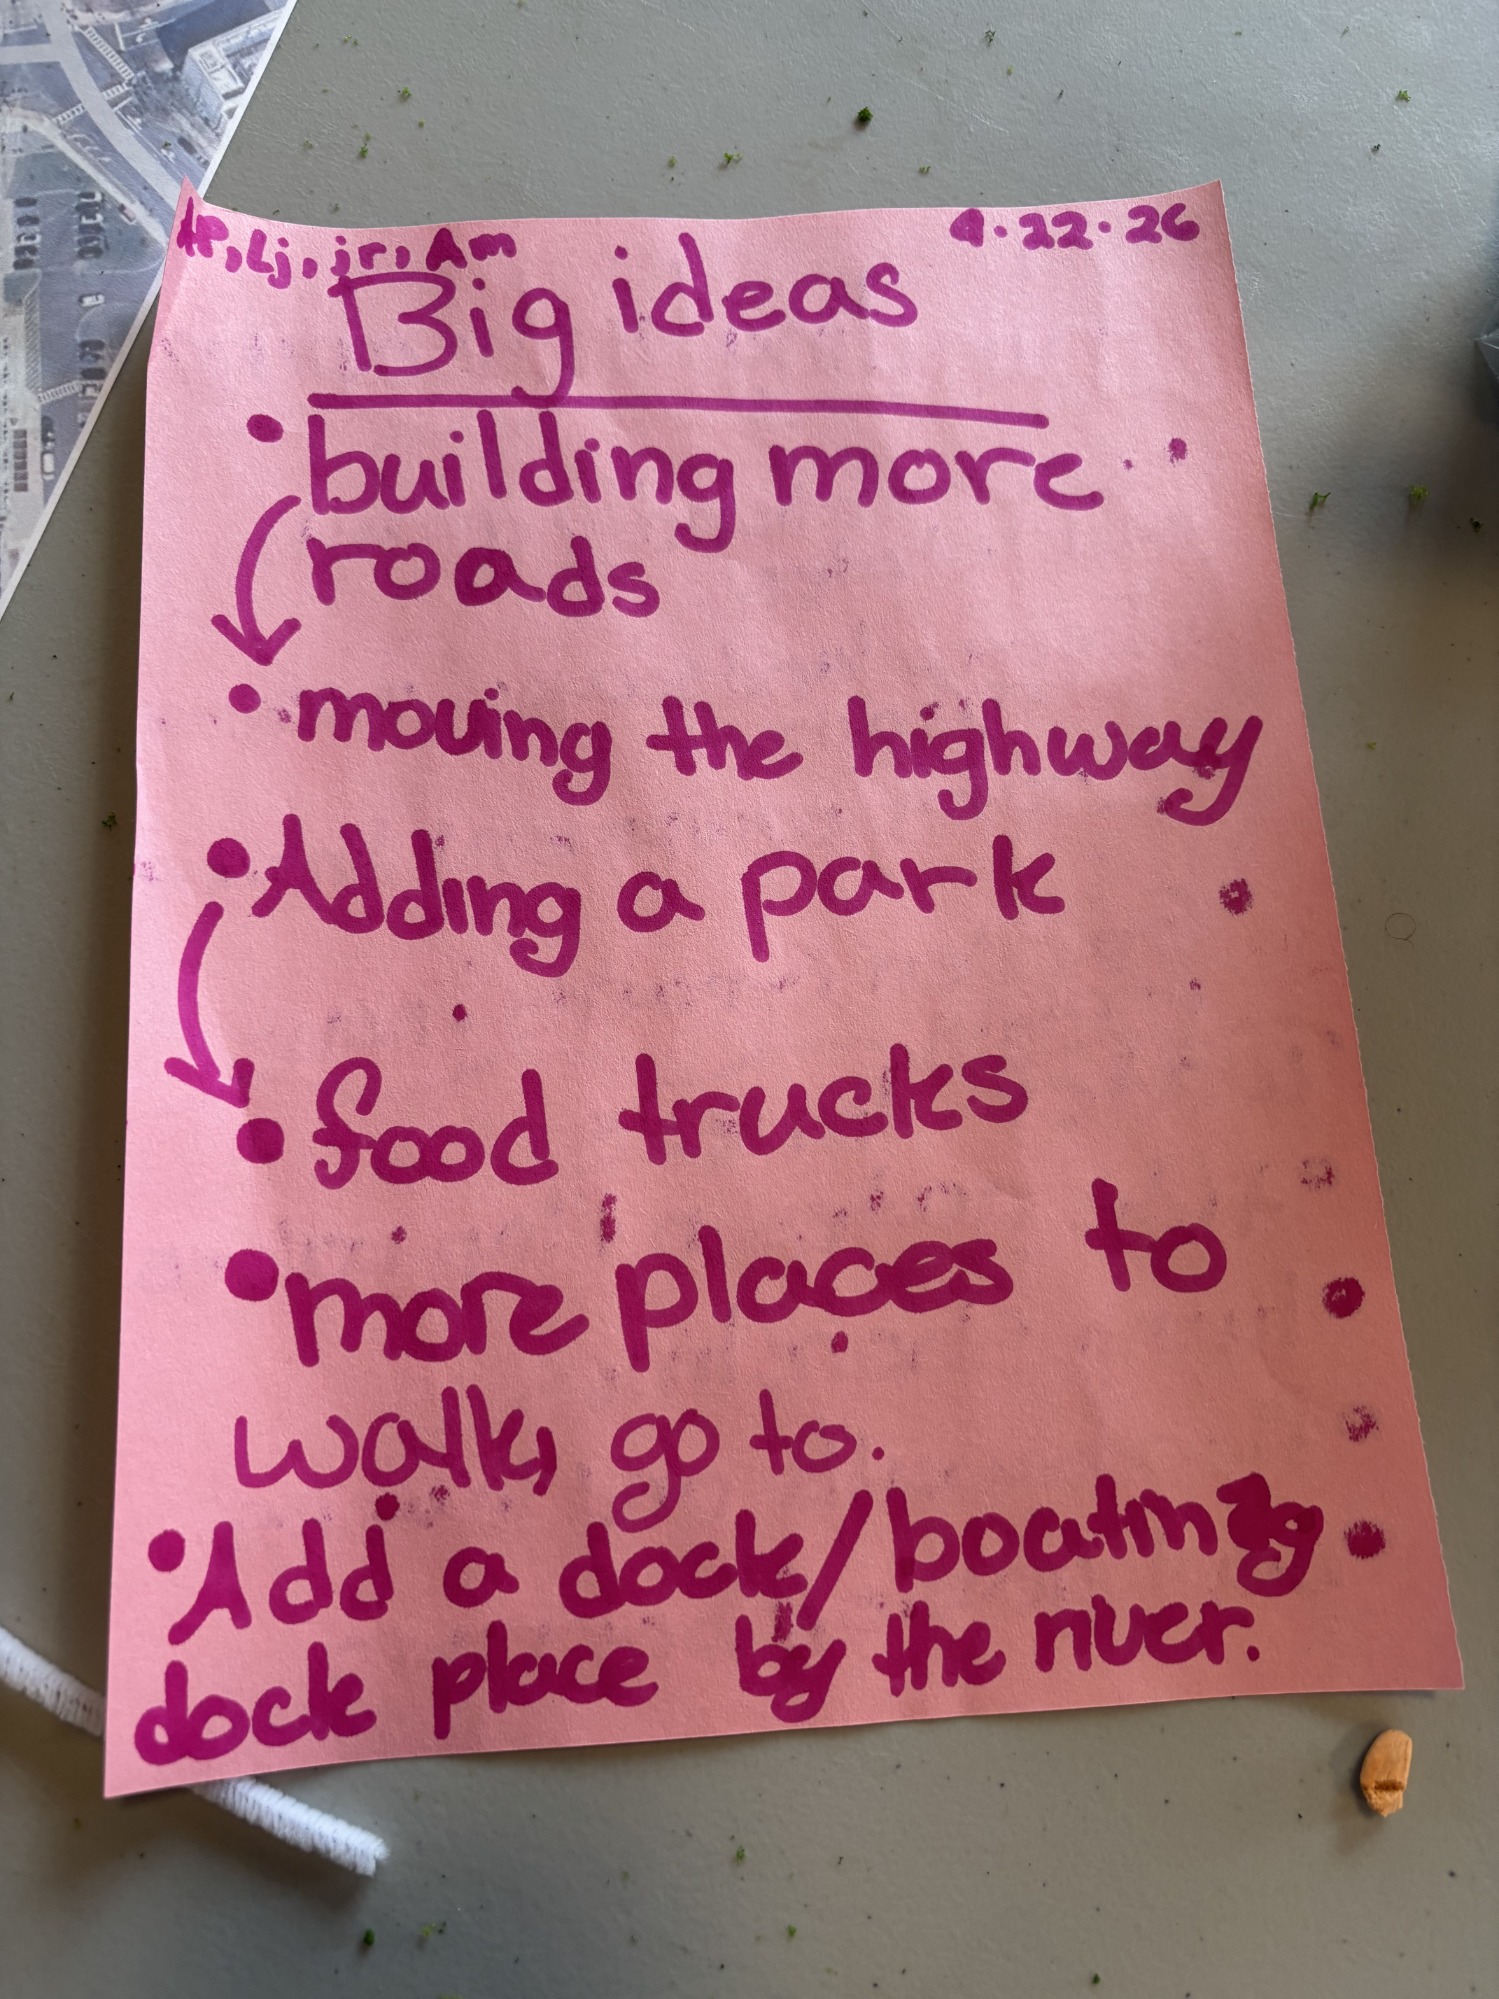 AP, Lj, jr, Am
4.22.26
Big ideas
• building more
roads
• moving the highway
• Adding a park
• food trucks
• more places to
walk, go to.
• Add a dock/boating
dock place by the river.